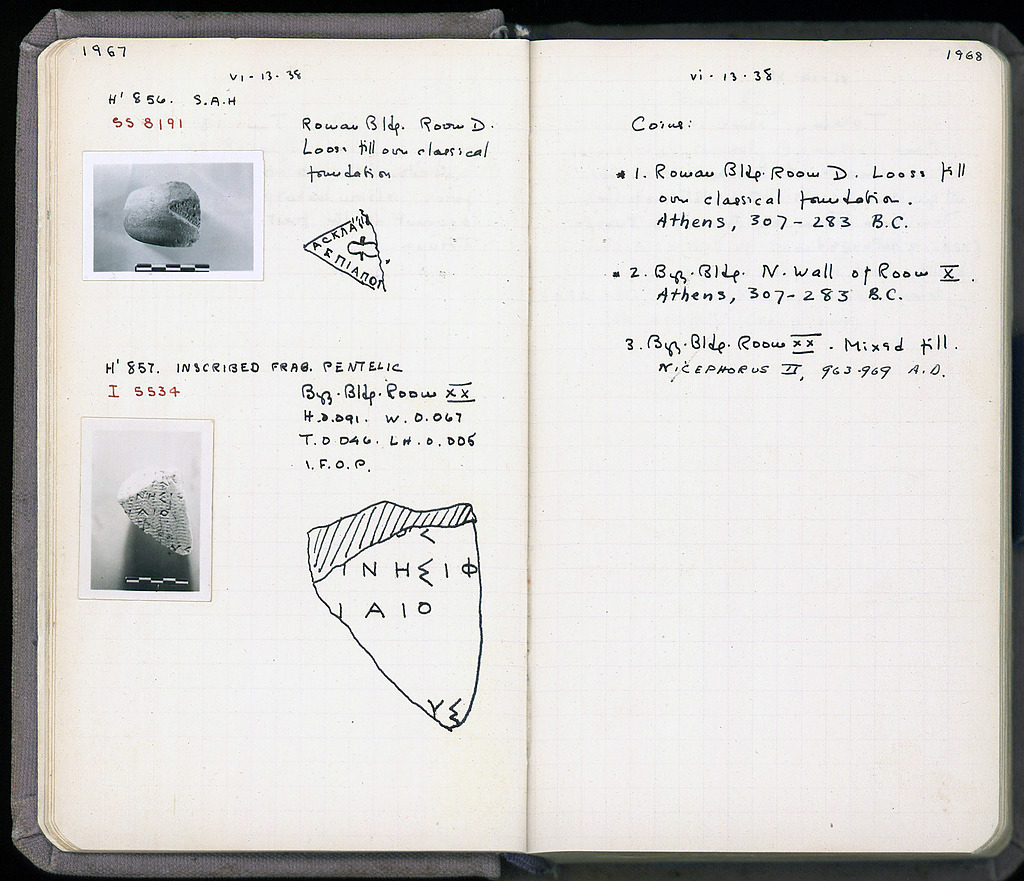 1967
vi - 13 - 38
H' 856. S.A.H
SS 8191
Roman Bldg. Room D.
Loose fill over classical
foundation
ΑΣΚΛΑ
ΣΠΙΑΠΟΓ
H' 857. INSCRIBED FRAG. PENTELIC
I 5534
Byz. Bldg. Room XX
H.0.091. W. 0.067
T. 0 046. LH. 0.005
I.F.O.P.
Ι Ν Η Σ Ι Φ
Ι Α Ι Ο
Υ Σ
1968
vi - 13 - 38
Coins:
* 1. Roman Bldg. Room D. Loose fill
over classical foundation.
Athens, 307 - 283 B.C.
* 2. Byz. Bldg. N. Wall of Room X.
Athens, 307 - 283 B.C.
3. Byz. Bldg. Room XX. Mixed fill.
NICEPHORUS II, 963-969 A.D.